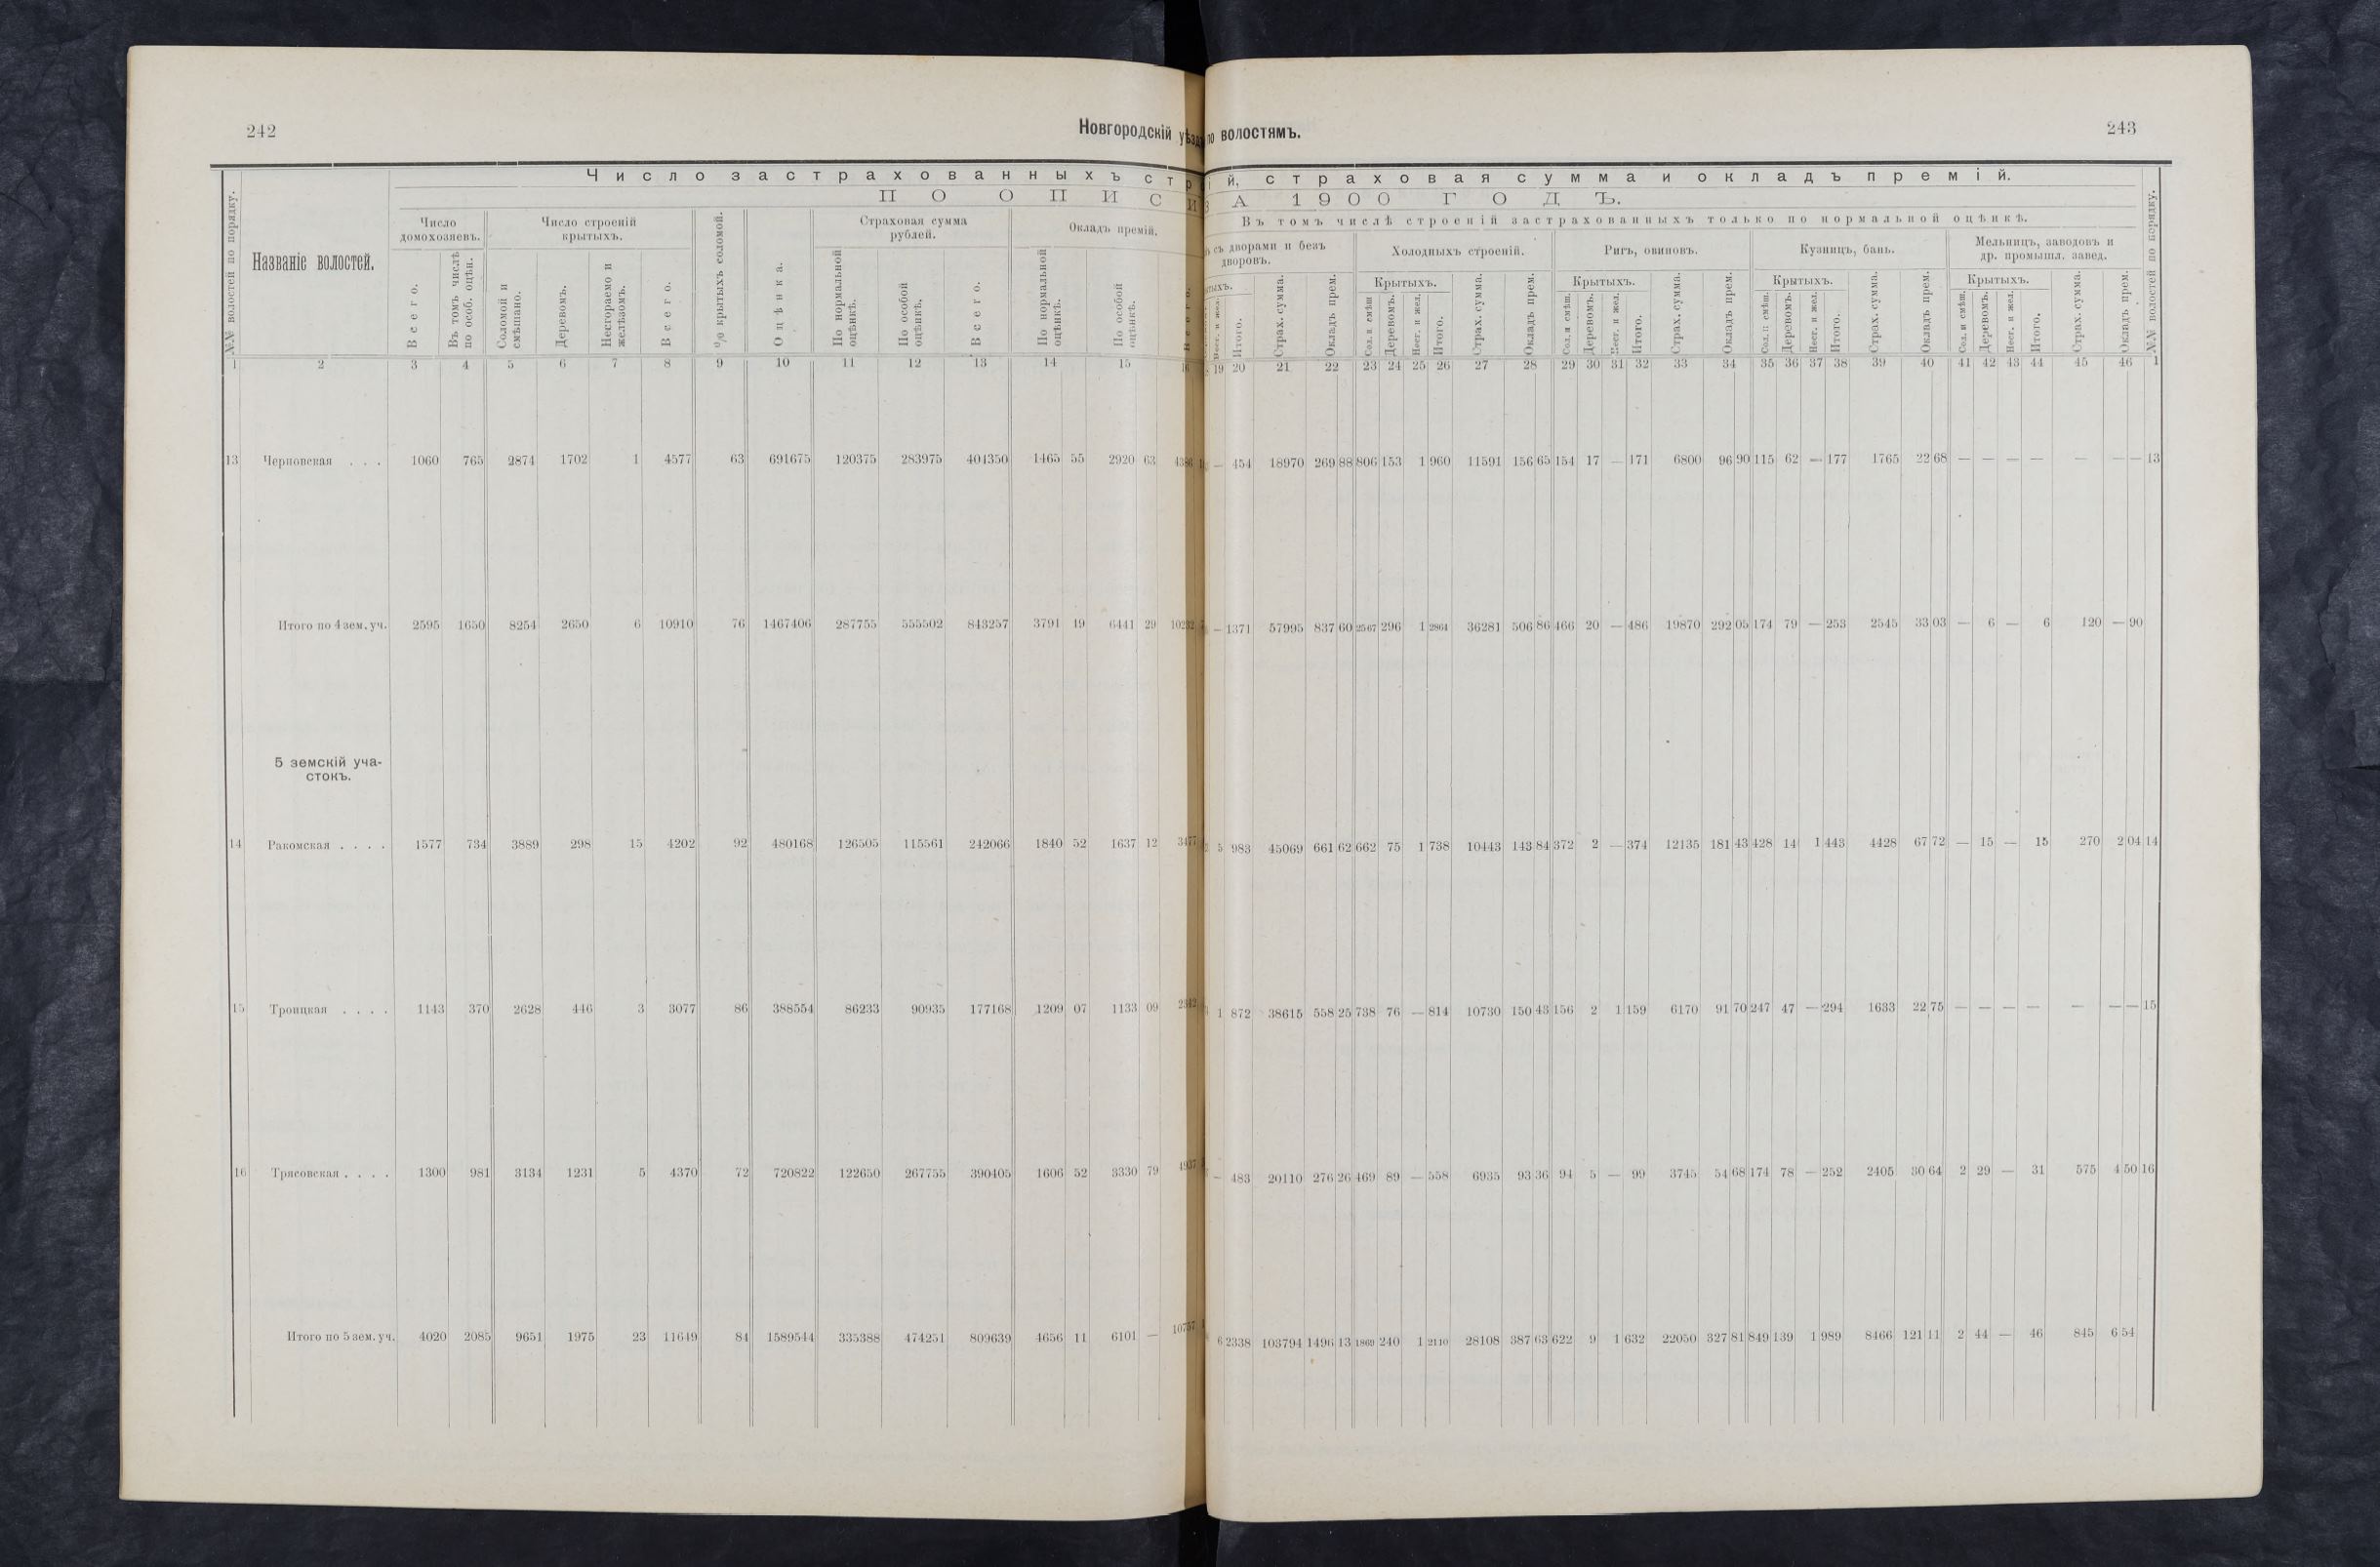 242
Новгородскій уѣздъ по волостямъ.
243
Число застрахованныхъ стр ій, страховая сумма и окладъ премій.
ПО ОПИСИ ЗА 1900 ГОДЪ.
№№ волостей по порядку.
Названіе волостей.
Число домохозяевъ.
Число строеній крытыхъ.
% крытыхъ соломой.
Оцѣнка.
Страховая сумма рублей.
Окладъ премій.
Въ томъ числѣ строеній застрахованныхъ только по нормальной оцѣнкѣ.
съ дворами и безъ дворовъ.
Холодныхъ строеній.
Ригъ, овиновъ.
Кузницъ, бань.
Мельницъ, заводовъ и др. промышл. завед.
№№ волостей по порядку.
Всего.
Въ томъ числѣ по особ. оцѣн.
Соломой и смѣшано.
Деревомъ.
Несгораемо и желѣзомъ.
Всего.
По нормальной оцѣнкѣ.
По особой оцѣнкѣ.
Всего.
По нормальной оцѣнкѣ.
По особой оцѣнкѣ.
Нест. и жел.
Итого.
Страх. сумма.
Окладъ прем.
Крытыхъ.
Сол. и смѣш.
Деревомъ.
Нест. и жел.
Итого.
Страх. сумма.
Окладъ прем.
Крытыхъ.
Сол. и смѣш.
Деревомъ.
Нест. и жел.
Итого.
Страх. сумма.
Окладъ прем.
Крытыхъ.
Сол. и смѣш.
Деревомъ.
Нест. и жел.
Итого.
Страх. сумма.
Окладъ прем.
Крытыхъ.
Сол. и смѣш.
Деревомъ.
Нест. и жел.
Итого.
Страх. сумма.
Окладъ прем.
1 2 3 4 5 6 7 8 9 10 11 12 13 14 15 16 19 20 21 22 23 24 25 26 27 28 29 30 31 32 33 34 35 36 37 38 39 40 41 42 43 44 45 46 1
13 Черновская . . . 1060 765 2874 1702 1 4577 63 691675 120375 283975 404350 1465 55 2920 63 4386 — 454 18970 269 88 806 153 1 960 11591 156 65 154 17 — 171 6800 96 90 115 62 — 177 1765 22 68 — — — — — — — 13
Итого по 4 зем. уч. 2595 1650 8254 2650 6 10910 76 1467406 287755 555502 843257 3791 19 6441 29 10232 — 1371 57995 837 60 2567 296 1 2864 36281 506 86 466 20 — 486 19870 292 05 174 79 — 253 2545 33 03 — 6 — 6 120 — 90
5 земскій уча-
стокъ.
14 Ракомская . . . . 1577 734 3889 298 15 4202 92 480168 126505 115561 242066 1840 52 1637 12 3477 5 983 45069 661 62 662 75 1 738 10443 143 84 372 2 — 374 12135 181 43 428 14 1 443 4428 67 72 — 15 — 15 270 2 04 14
15 Троицкая . . . . 1143 370 2628 446 3 3077 86 388554 86233 90935 177168 1209 07 1133 09 2342 1 872 38615 558 25 738 76 — 814 10730 150 43 156 2 1 159 6170 91 70 247 47 — 294 1633 22 75 — — — — — — — 15
16 Трясовская . . . . 1300 981 3134 1231 5 4370 72 720822 122650 267755 390405 1606 52 3330 79 4937 — 483 20110 276 26 469 89 — 558 6935 93 36 94 5 — 99 3745 54 68 174 78 — 252 2405 30 64 2 29 — 31 575 4 50 16
Итого по 5 зем. уч. 4020 2085 9651 1975 23 11649 84 1589544 335388 474251 809639 4656 11 6101 — 10757 6 2338 103794 1496 13 1869 240 1 2110 28108 387 63 622 9 1 632 22050 327 81 849 139 1 989 8466 121 11 2 44 — 46 845 6 54